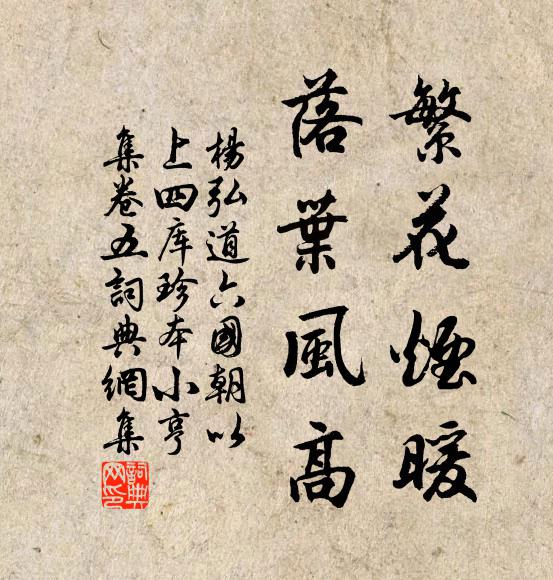 繁花煙暖
落葉風高
楊弘道六國朝以
上四库珍本小亨
集卷五詞典網集
詞典网印